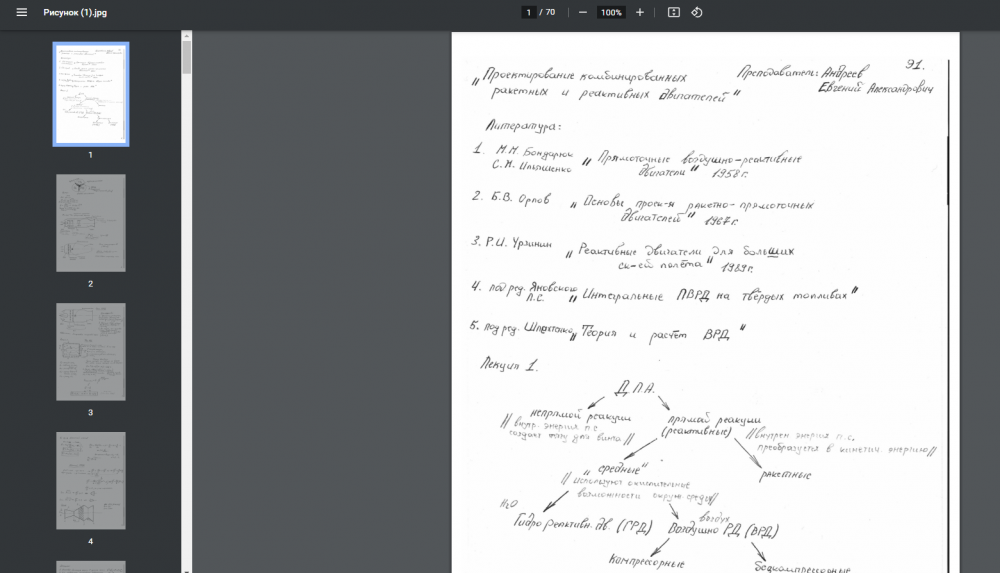 Рисунок (1).jpg
1 / 70
100%
91.
"Проектирование комбинированных
ракетных и реактивных двигателей"
Преподаватель: Андреев
Евгений Александрович
Литература:
1. М.М. Бондарюк
С.М. Ильяшенко
"Прямоточные воздушно-реактивные
двигатели" 1958г.
2. Б.В. Орлов "Основы проек-я ракетно-прямоточных
двигателей" 1967г.
3. Р.И. Курзинин "Реактивные двигатели для больших
ск-ей полёта" 1989г.
4. под ред. Яновского
Л.С. "Интегральные ПВРД на твёрдых топливах"
5. под ред. "Теория и расчёт ВРД"
Лекция 1.
Д.Л.А.
непрямой реакции
// внутр. энергия р.с.
создаёт тягу для винта //
прямой реакции
(реактивные)
// внутрен энергия р.с.
преобразуется в кинетич. энергию //
"средные"
// используют окислительные
возможности окруж среды //
ракетные
H₂O
Гидро реактивн. дв. (ГРД)
воздух
Воздушно РД (ВРД)
Компрессорные
бескомпрессорные
1
2
3
4